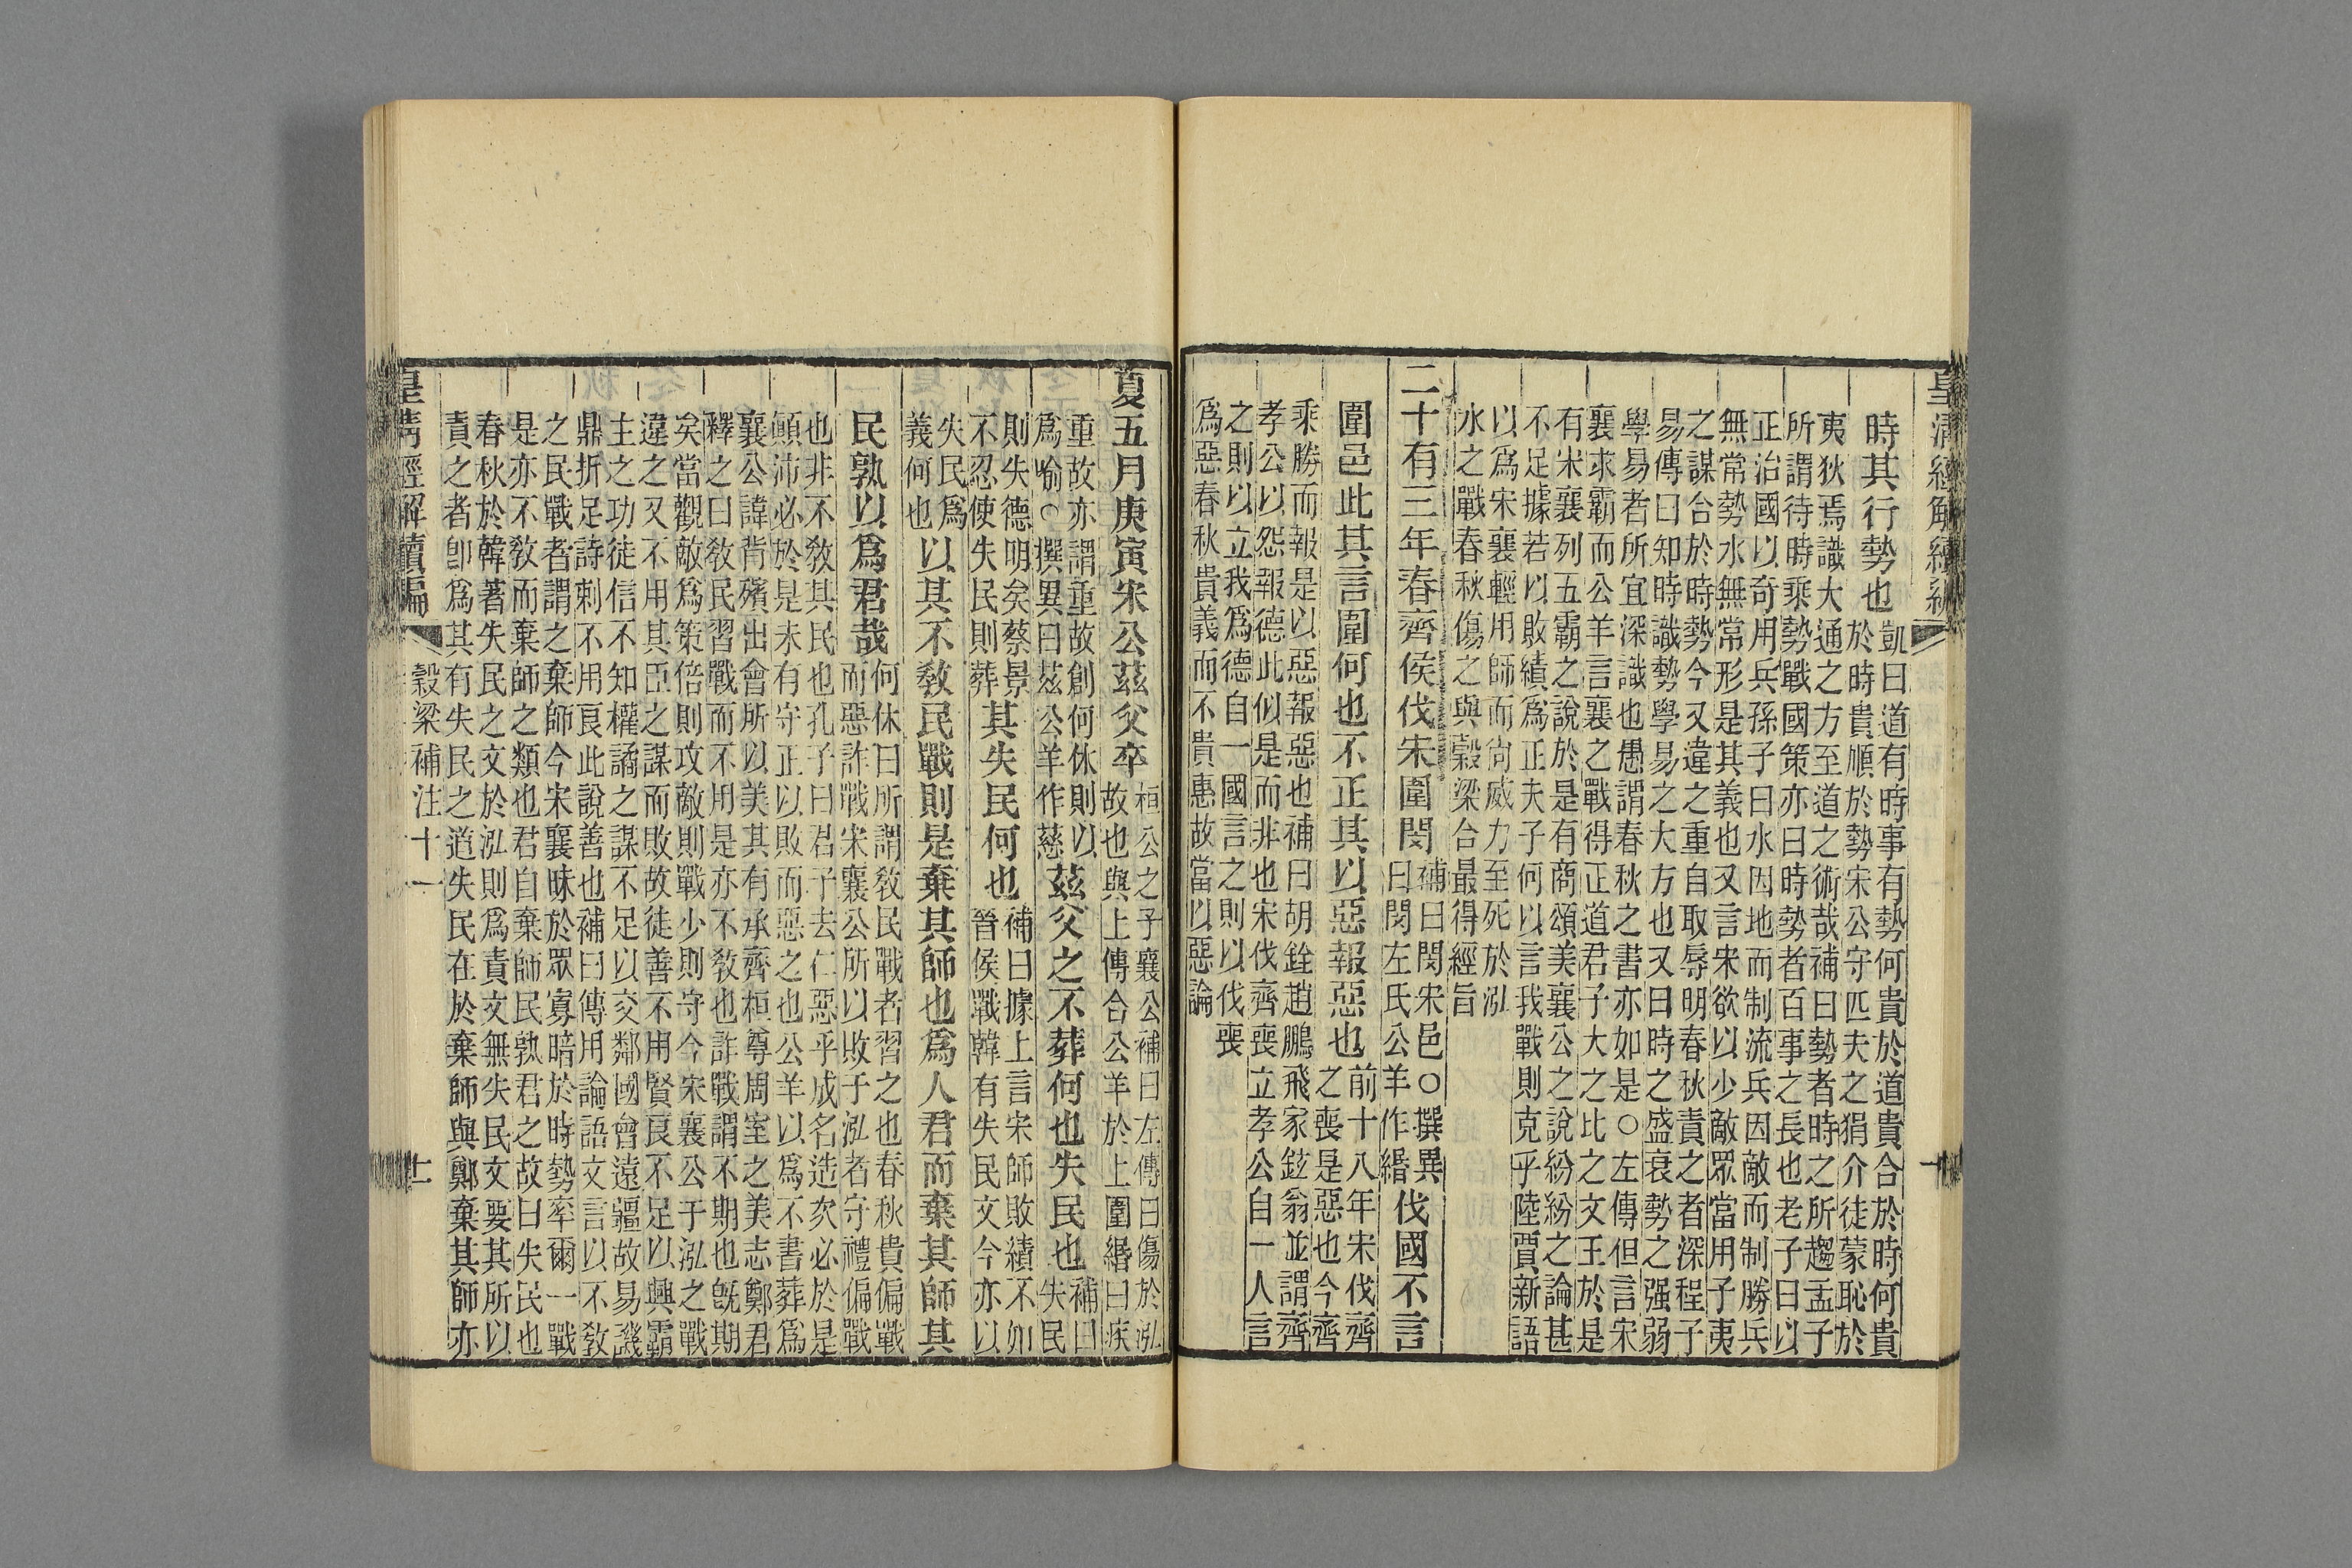 皇清經解續編
時其行勢也
凱曰道有時事有勢何貴於道貴合於時何貴
於時貴順於勢宋公守匹夫之狷介徒蒙恥於
夷狄焉識大通之方至道之術哉補曰勢者時之所趨孟子
所謂待時乘勢戰國策亦曰時勢者百事之長也老子曰以
正治國以奇用兵孫子曰水因地而制流兵因敵而制勝兵
無常勢水無常形是其義也又言宋欲以少敵眾當用子夷
之謀合於時勢今又違之重自取辱明春秋責之者深程子
易傳曰知時識勢學易之大方也又曰時之盛衰勢之强弱
學易者所宜深識也愚謂春秋之書亦如是○左傳但言宋
襄求霸而公羊言襄之戰得正道君子大之比之文王於是
有宋襄列五霸之說於是有商頌美襄公之說紛紛之論甚
不足據若以敗績爲正夫子何以言我戰則克乎陸賈新語
以爲宋襄輕用師而尚威力至死於泓
水之戰春秋傷之與穀梁合最得經旨
二十有三年春齊侯伐宋圍閔
補曰閔宋邑○撰異
曰閔左氏公羊作緡
伐國不言
圍邑此其言圍何也不正其以惡報惡也
前十八年宋伐齊
之喪是惡也今齊
乘勝而報是以惡報惡也補曰胡銓趙鵬飛家鉉翁並謂齊
孝公以怨報德此似是而非也宋伐齊喪立孝公自一人言
之則以立我爲德自一國言之則以伐喪
爲惡春秋貴義而不貴惠故當以惡論
夏五月庚寅宋公茲父卒
桓公之子襄公補曰左傳曰傷於泓
故也與上傳合公羊於上圍緡曰疾
重故亦謂重故創何休則以
爲喻○撰異曰茲公羊作慈
茲父之不葬何也失民也
補曰
失民
則失德明矣蔡景
不忍使失民則葬
其失民何也
補曰據上言宋師敗績不如
晉侯戰韓有失民文今亦以
失民爲
義何也
以其不敎民戰則是棄其師也爲人君而棄其師其
民孰以爲君哉
何休曰所謂敎民戰者習之也春秋貴偏戰
而惡詐戰宋襄公所以敗于泓者守禮偏戰
也非不敎其民也孔子曰君子去仁惡乎成名造次必於是
顚沛必於是未有守正以敗而惡之也公羊以爲不書葬爲
襄公諱背殯出會所以美其有承齊桓尊周室之美志鄭君
釋之曰敎民習戰而不用是亦不敎也詐戰謂不期也旣期
矣當觀敵爲策倍則攻敵則戰少則守今宋襄公于泓之戰
違之又不用其臣之謀而敗故徒善不用賢良不足以興霸
主之功徒信不知權譎之謀不足以交鄰國會遠疆故易譏
鼎折足詩刺不用良此說善也補曰傳用論語文言以不敎
之民戰者謂之棄師今宋襄昧於眾寡暗於時勢率爾一戰
是亦不敎而棄師之類也君自棄師民孰君之故曰失民也
春秋於韓著失民之文於泓則爲責文無失民文要其所以
責之者卽爲其有失民之道失民在於棄師與鄭棄其師亦
皇淸經解續編
穀梁補注十一
十一